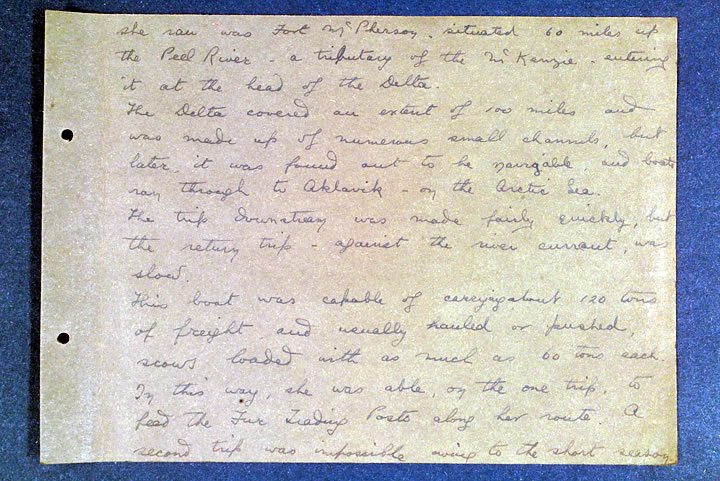 she ran was Fort McPherson, situated 60 miles up
the Peel River - a tributary of the McKenzie - entering
it at the head of the Delta.
The Delta covered an extent of 100 miles and
was made up of numerous small channels, but
later, it was found out to be navigable, and boats
ran through to Aklavik - on the Arctic Sea.
The trip downstream was made fairly quickly, but
the return trip - against the river current, was
slow.
This boat was capable of carrying about 120 tons
of freight, and usually hauled or pushed,
scows loaded with as much as 60 tons each.
In this way, she was able, on the one trip, to
feed the Fur Trading Posts along her route. A
second trip was impossible owing to the short season